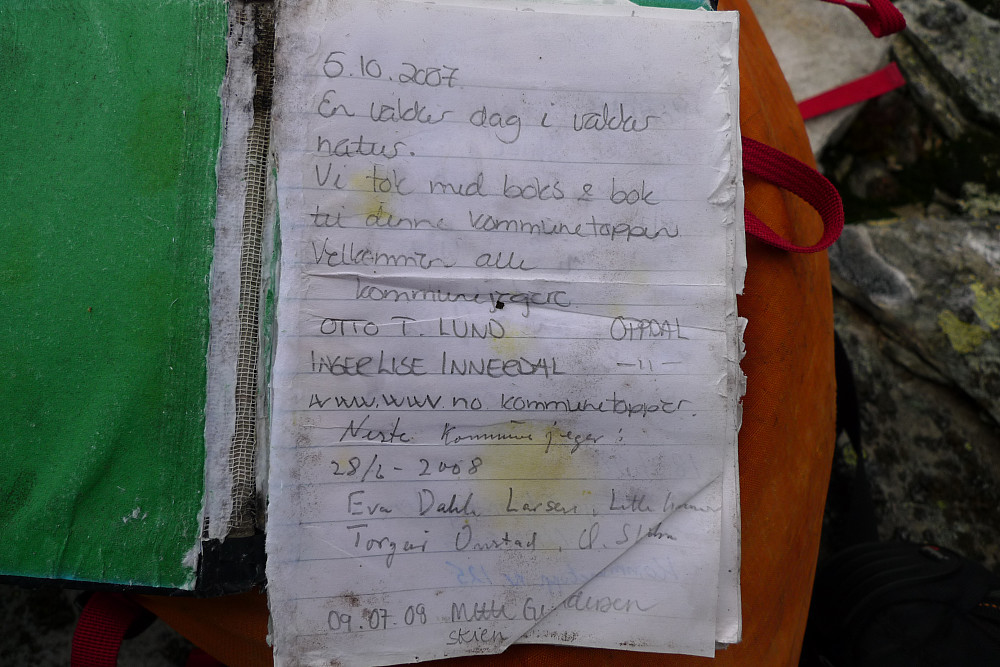 5.10.2007
En vakker dag i vakker
natur.
Vi tok med boks & bok
til denne kommunetoppen
Velkommen alle
kommunejegere
OTTO T. LUND OPPDAL
INGERLISE INNERDAL —11—
www.wwv.no kommunetopper.
Neste Kommunejeger:
28/6-2008
Eva Dahle Larsen,
Torgeir Onstad,
09.07.09 Mette Gundersen
skien